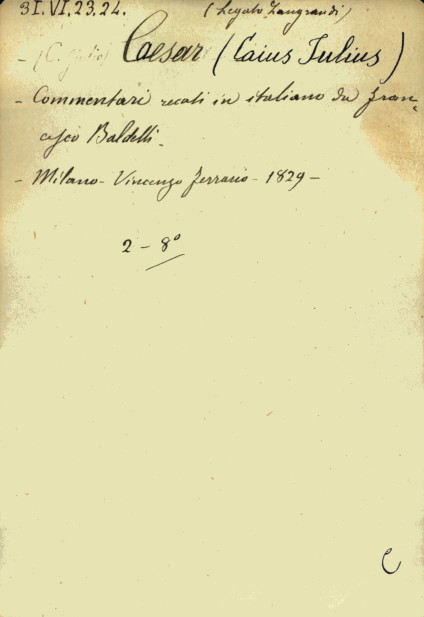 31.VI.23.24. (Legato Zangrandi)
- (C. Giulio) Caesar (Caius Julius)
- Commentari recati in italiano da Fran-
cesco Baldelli.
- Milano - Vincenzo Ferrario - 1829 -
2 - 8°
C